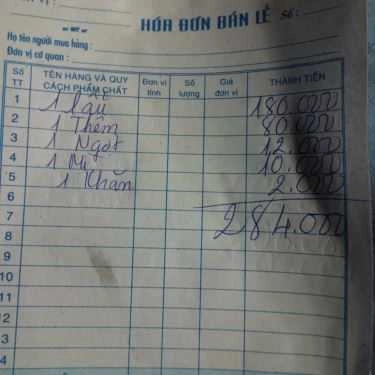 HÓA ĐƠN BÁN LẺ Số:
Họ tên người mua hàng:
Đơn vị cơ quan:
Số TT TÊN HÀNG VÀ QUY CÁCH PHẨM CHẤT Đơn vị tính Số lượng Giá đơn vị THÀNH TIỀN
1 1 Lẩu 180.000
2 1 Thêm 80.000
3 1 Ngọt 12.000
4 1 Mì 10.000
5 1 Khăn 2.000
6
7 284.000
8
9
10
11
12
13
4